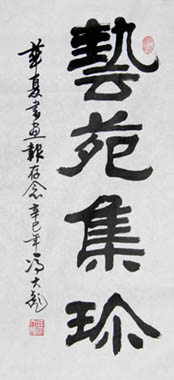 藝苑集珍
華夏書畫報存念辛巳年馮大彪